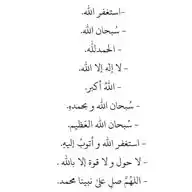 -استغفر الله.
- سُبحان الله.
- الحمدلله.
- لا إله إلا الله.
- اللهُ أكبر.
- سُبحان الله و بحمدهِ.
- سُبحان الله العَظيم.
- استغفر الله و أتوبُ إليهِ.
- لا حول و لا قوة إلا بالله .
- اللهُمَّ صلِّ علىٰ نبينا محمد.